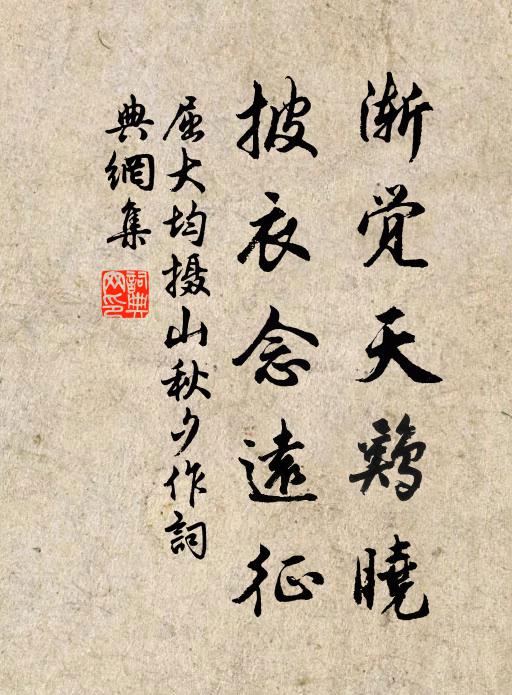 渐觉天鷄曉
披衣念遠征
屈大均摄山秋夕作詞
典網集
詞典网印